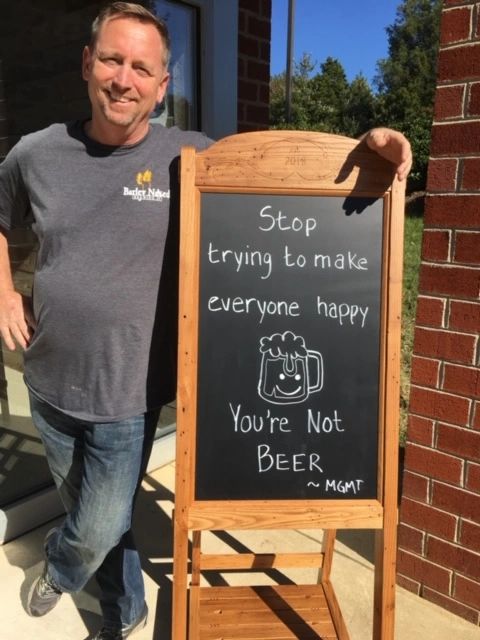 Barley Naked
2018
Stop
trying to make
everyone happy
You're Not
BEER
~ MGMT